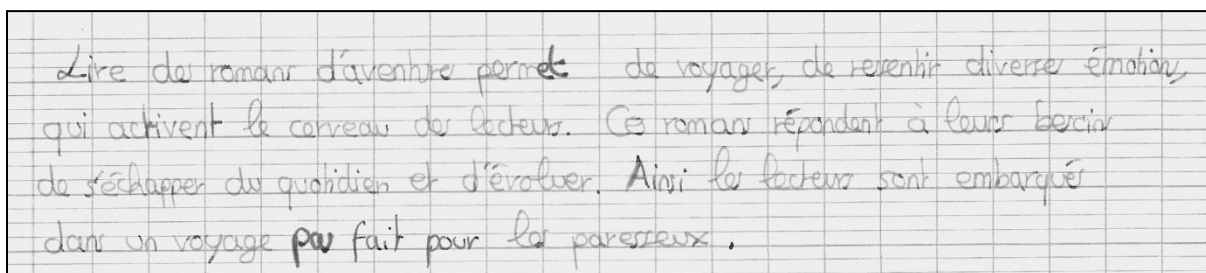 Lire des romans d'aventure permet de voyager, de resentir diverse émotion,
qui activent le cerveau des lecteurs. Ces romans répondent à leurs besoin
de s'échapper du quotidien et d'évoluer. Ainsi les lecteurs sont embarqués
dans un voyage pas fait pour les paresseux.